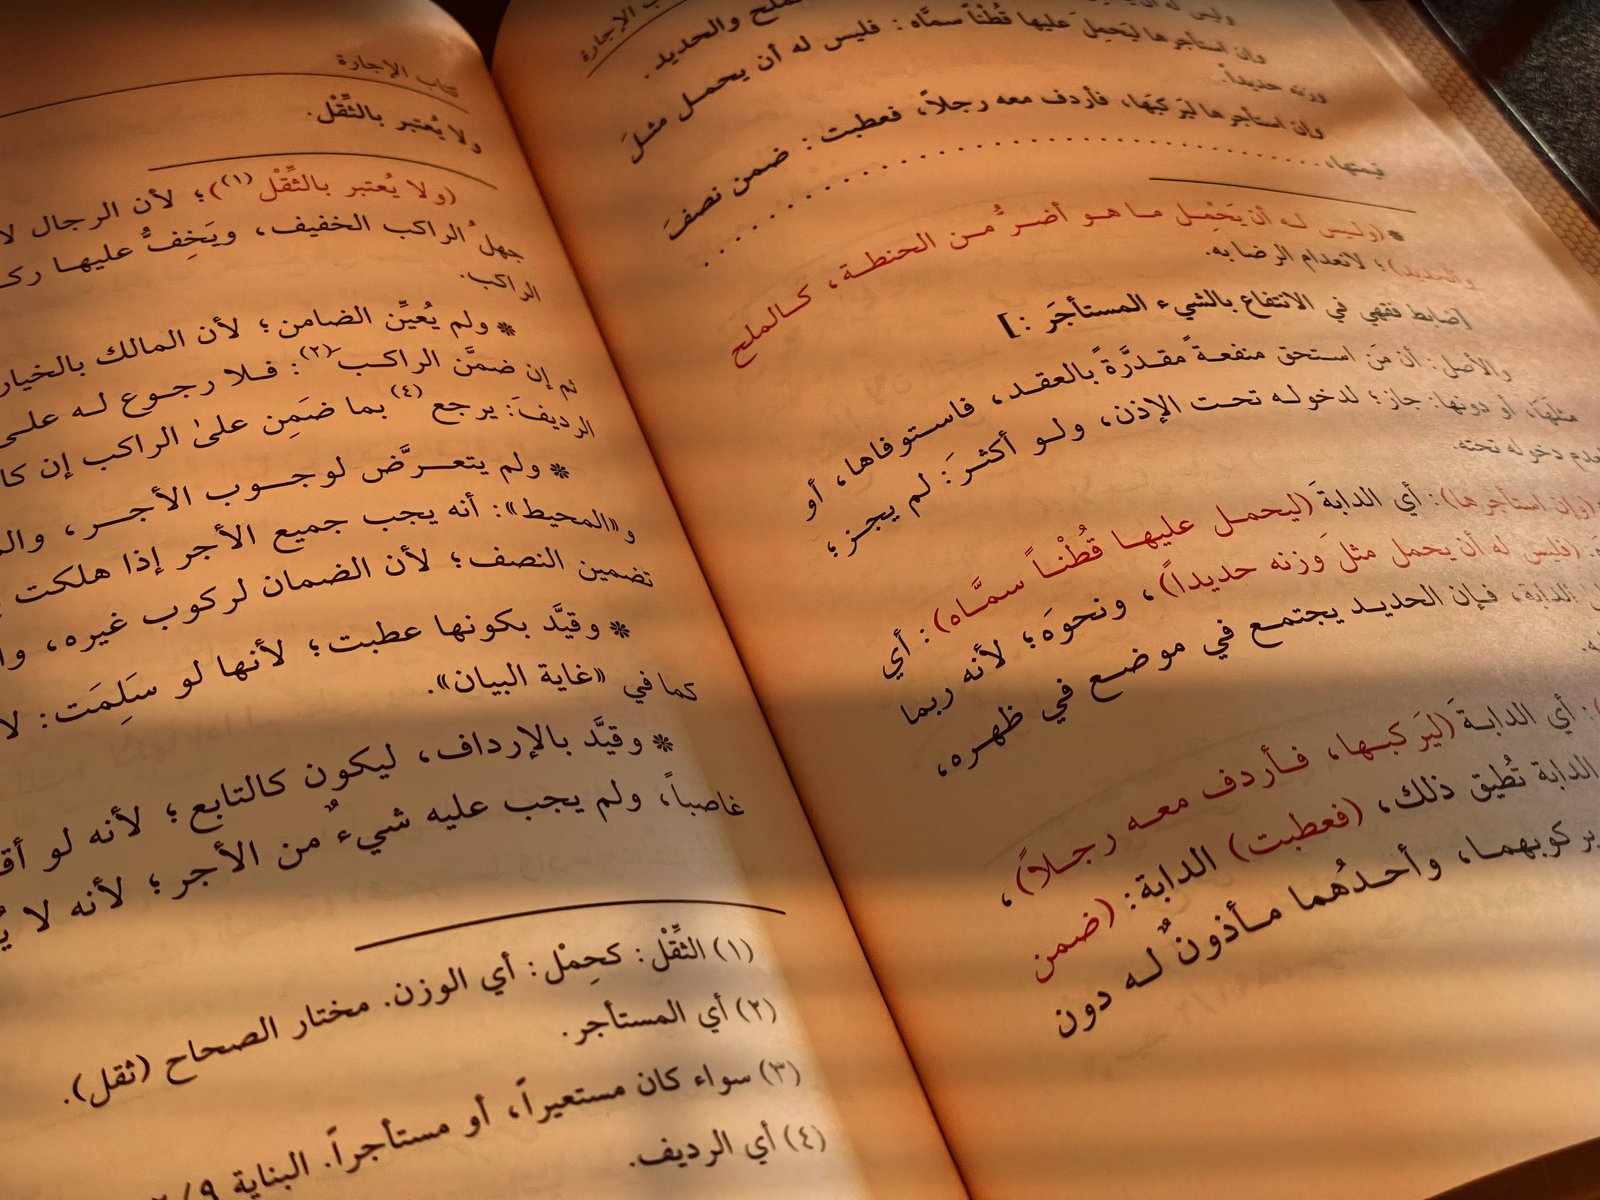 كتاب الإجارة
الملح والحديد.
وإن استأجرها ليَحمِلَ عليها قُطْناً سمَّاه: فليس له أن يحمل مثلَ
وزنه حديداً.
وإن استأجرها ليَركبَها، فأردف معه رجلاً، فعطبت: ضمن نصفَ
قيمتها.
* (وليس له أن يَحْمِل ما هو أضرُّ من الحنطة، كالملح
والحديد)؛ لانعدام الرضا به.
[ضابط فقهي في الانتفاع بالشيء المستأجَر:]
والأصل: أن مَن استحق منفعةً مقدَّرةً بالعقد، فاستوفاها، أو
مثلَها، أو دونها: جاز؛ لدخوله تحت الإذن، ولو أكثرَ: لم يجز؛
لعدم دخوله تحته.
(وإن استأجرها): أي الدابةَ (ليحمل عليها قُطْناً سمَّاه): أي
(فليس له أن يحمل مثلَ وزنه حديداً)، ونحوَه؛ لأنه ربما
الدابة، فإن الحديد يجتمع في موضع في ظهره،
: أي الدابةَ (ليَركبها، فأردف معه رجلاً)،
الدابة تُطيق ذلك، (فعطبت) الدابة: (ضمن
بركوبهما، وأحدُهما مأذونٌ له دون
كتاب الإجارة
ولا يُعتبر بالثِّقْل.
(ولا يُعتبر بالثِّقْل(١))؛ لأن الرجال لا
جهلُ الراكب الخفيف، ويَخِفُّ عليها
الراكب.
* ولم يُعيِّن الضامن؛ لأن المالك بالخيار
ثم إن ضمَّن الراكب(٢): فلا رجوع له على
الرديفَ: يرجع(٤) بما ضَمِن علىٰ الراكب إن
* ولم يتعرَّض لوجوب الأجر،
و«المحيط»: أنه يجب جميع الأجر إذا هلكت
تضمين النصف؛ لأن الضمان لركوب غيره،
* وقيَّد بكونها عطبت؛ لأنها لو سَلِمَت:
كما في «غاية البيان».
* وقيَّد بالإرداف، ليكون كالتابع؛ لأنه لو
غاصباً، ولم يجب عليه شيءٌ من الأجر؛ لأنه لا
(١) الثِّقْل: كحِمْل: أي الوزن. مختار الصحاح (ثقل).
(٢) أي المستأجر.
(٣) سواء كان مستعيراً، أو مستأجراً. البناية ٩/
(٤) أي الرديف.